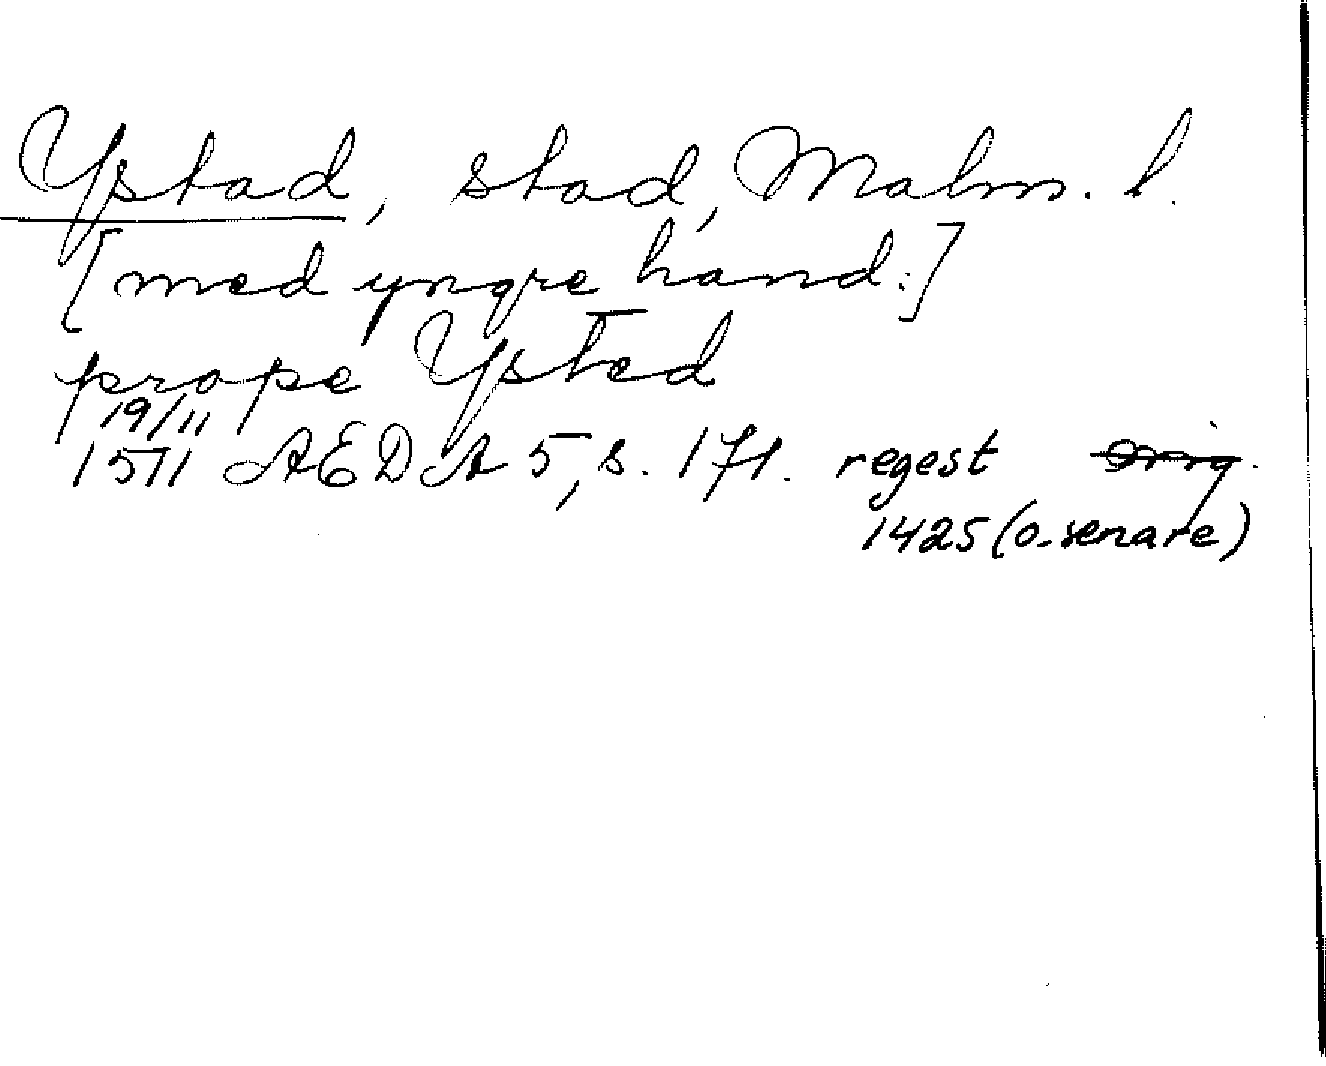 Ystad, stad, Malm. l.
[med yngre hand:]
prope Ysted
19/11
1571 AEDA 5, s. 171. regest Orig.
1425 (o. senare)